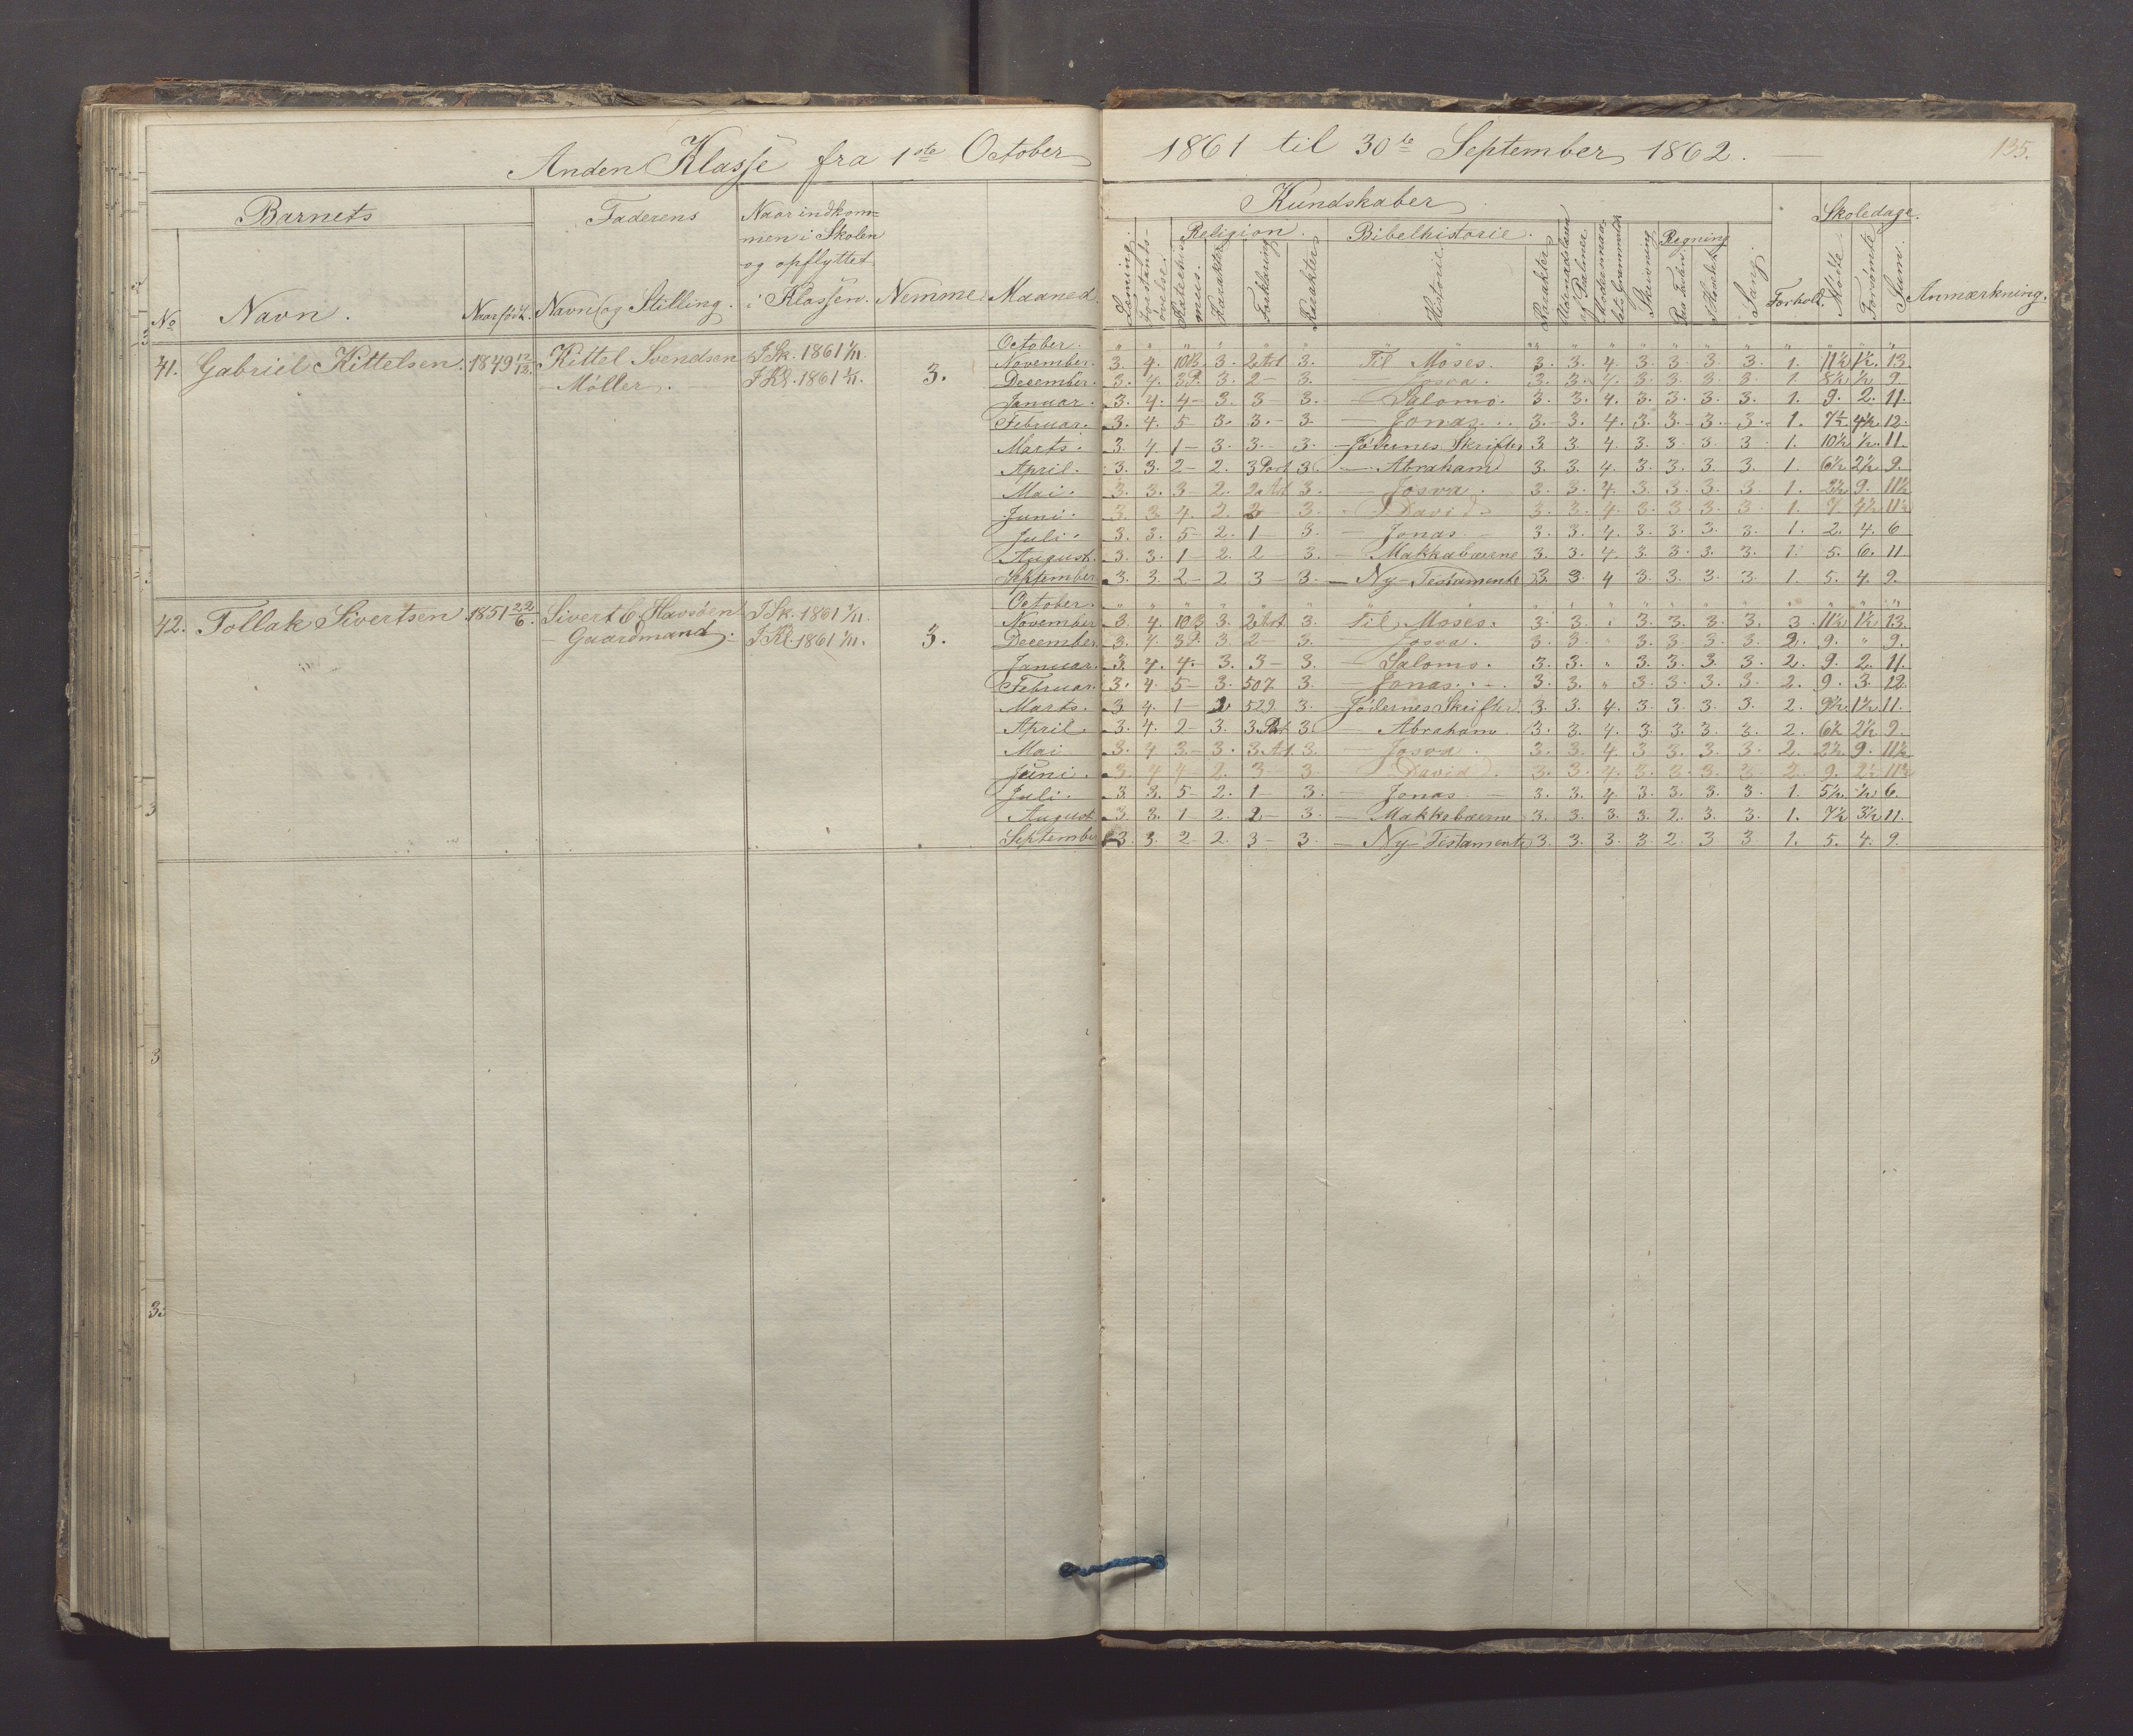 Anden Klasse fra 1ste October 1861 til 30te September 1862. 135.
Barnets
Faderens
Naar indkom-
men i Skolen
og opflyttet
i Klassen.
Nemme.
Maaned.
No
Navn.
Naar född.
Navn og Stilling.
Kundskaber
Religion.
Bibelhistorie.
Regning
Skoledage.
Læsning.
Forstands-
øvelse.
Katekis-
mus.
Karakter
Forklaring
Karakter
Historie
Karakter
Udenadslæsn.
af Psalmer
Modersmaa-
lets Grammatik
Skrivning
Paa Tavlen
I Hovedet
Sang.
Forhold.
Mødte.
Forsømte
Sum.
Anmærkning.
41. Gabriel Kittelsen. 1849 12/12. Kittel Svendsen
Møller.
I Sk. 1861 1/11.
I Kl. 1861 1/11.
3.
October. " " " " " " " " " " " " " " " " " "
November. 3. 4. 10 B. 3. 2 Art 3. Til Moses. 3. 3. 4. 3. 3. 3. 3. 1. 11½ 1½. 13.
Desember. 3. 4. 3 P. 3. 2 — 3. — Josva. 3. 3. 4. 3. 3. 3. 3. 1. 8½ ½ 9.
Januar. 3. 4. 4 — 3. 3 — 3. — Salomo. 3. 3. 4. 3. 3. 3. 3. 1. 9. 2. 11.
Februar. 3. 4. 5 — 3. 3. — 3. — Jonas. 3. 3. 4. 3. 3. 3. 3. 1. 7½ 4½ 12.
Marts. 3. 4. 1 — 3. 3 — 3. — Jødernes Skrifter 3. 3. 4. 3. 3. 3. 3. 1. 10½ ½ 11.
April. 3. 3. 2 — 2. 3 Part 3. — Abraham 3. 3. 4. 3. 3. 3. 3. 1. 6½ 2½ 9.
Mai. 3. 3. 3 — 2. 2 Art 3. — Josva. 3. 3. 4. 3. 3. 3. 3. 1. 2½ 9. 11½
Juni. 3. 3. 4. 2. 3 — 3. David. 3. 3. 4. 3. 3. 3. 3. 1. 7. 4½ 11½
Juli. 3. 3. 5 — 2. 1 — 3. — Jonas — 3. 3. 4. 3. 3. 3. 3. 1. 2. 4. 6
August. 3. 3. 1 — 2. 2 — 3. — Makkabæerne 3. 3. 4. 3. 3. 3. 3. 1. 5. 6. 11.
September. 3. 3. 2 — 2. 3 — 3. — Ny Testamente 3. 3. 4 3. 3. 3. 3. 1. 5. 4. 9.
42. Tollak Sivertsen 1851 22/6. Sivert O. Havsöen
Gaardmand.
I Sk. 1861 1/11.
I Kl. 1861 1/11.
3.
October. " " " " " " " " " " " " " " " " " "
November 3. 4. 10 B 3. 2 Art. 3. Til Moses. 3. 3. " 3. 3. 3. 3. 3. 11½ 1½ 13.
December. 3. 4. 3 P. 3. 2 — 3. — Josva. 3. 3. " 3. 3. 3. 3. 2. 9. " 9.
Januar. 3. 4. 4. — 3. 3 — 3. — Salomo. 3. 3. " 3. 3. 3. 3. 2. 9. 2. 11.
Februar. 3. 4. 5 — 3. 507 3. — Jonas. — 3. 3. " 3. 3. 3. 3. 2. 9. 3. 12.
Marts. 3. 4. 1 — 529 3. — Jödernes Skrifter. 3. 3. 4. 3. 3. 3. 3. 2. 9½ 1½ 11.
April. 3. 4. 2 — 3. 3 Part 3. — Abraham 3. 3. 4. 3. 3. 3. 3. 2. 6½ 2½ 9.
Mai 3. 4 3. — 3. 3. Art. 3. — Josva. 3. 3. 4. 3. 3. 3. 3. 2. 2½ 9. 11½
Juni. 3. 4 4 — 2. 3 3. — David. 3. 3. 4. 3. 3. 3. 3. 2. 9. 2½ 11½
Juli. 3. 3. 5 — 2. 1 — 3. — Jonas. — 3. 3. 4. 3. 3. 3. 3. 1. 5½ ½ 6.
August. 3. 3. 1 — 2. 2 — 3. — Makkabæerne 3. 3. 3. 3. 2. 3. 3. 1. 7½ 3½ 11.
September 3. 3. 2 2. 3 — 3. — Ny Testamente 3. 3. 3. 3 2. 3 3. 1. 5. 4. 9.
3
3
3.